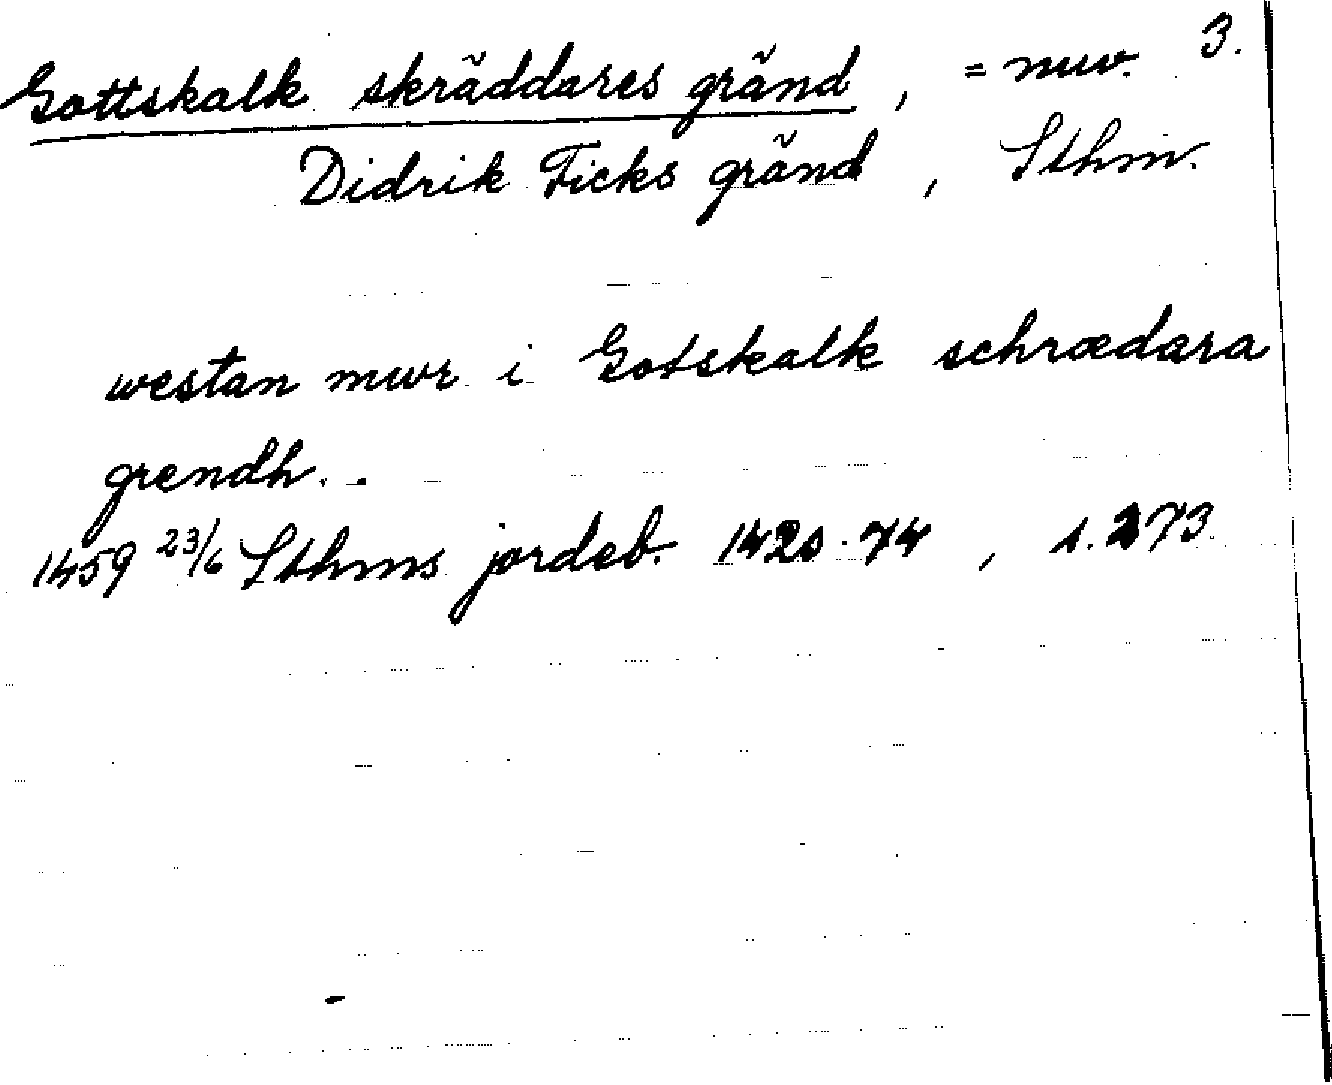 3.
Gottskalk skräddares gränd, = nuv.
Didrik Ficks gränd, Sthm.
westan mwr i Gotskalk schrædara
grendh..
1459 23/6 Sthms jordeb. 1420-74, s. 273.